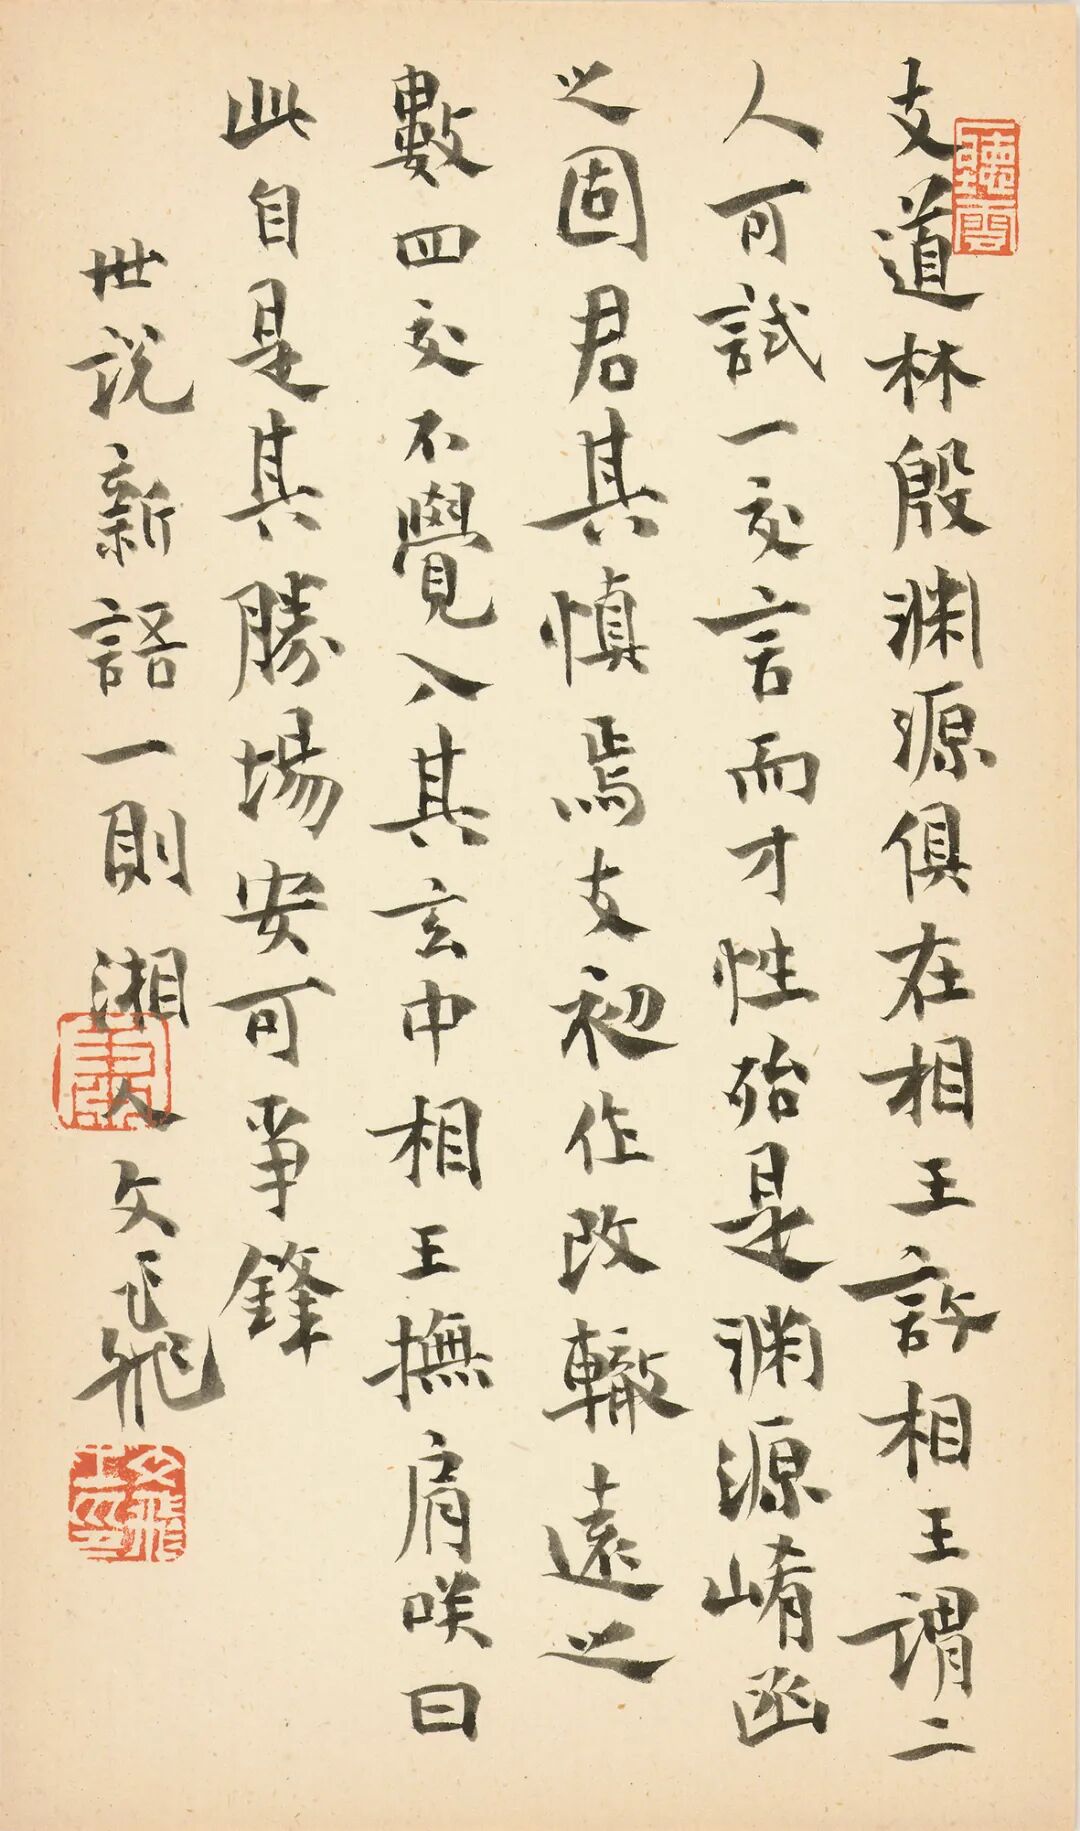 支道林殷渊源俱在相王許相王謂二
人可試一交言而才性殆是渊源崤函
之固君其慎焉支初作改轍遠之
數四交不覺入其玄中相王撫肩咲曰
此自是其勝場安可爭鋒
世説新語一則 湘人文飛